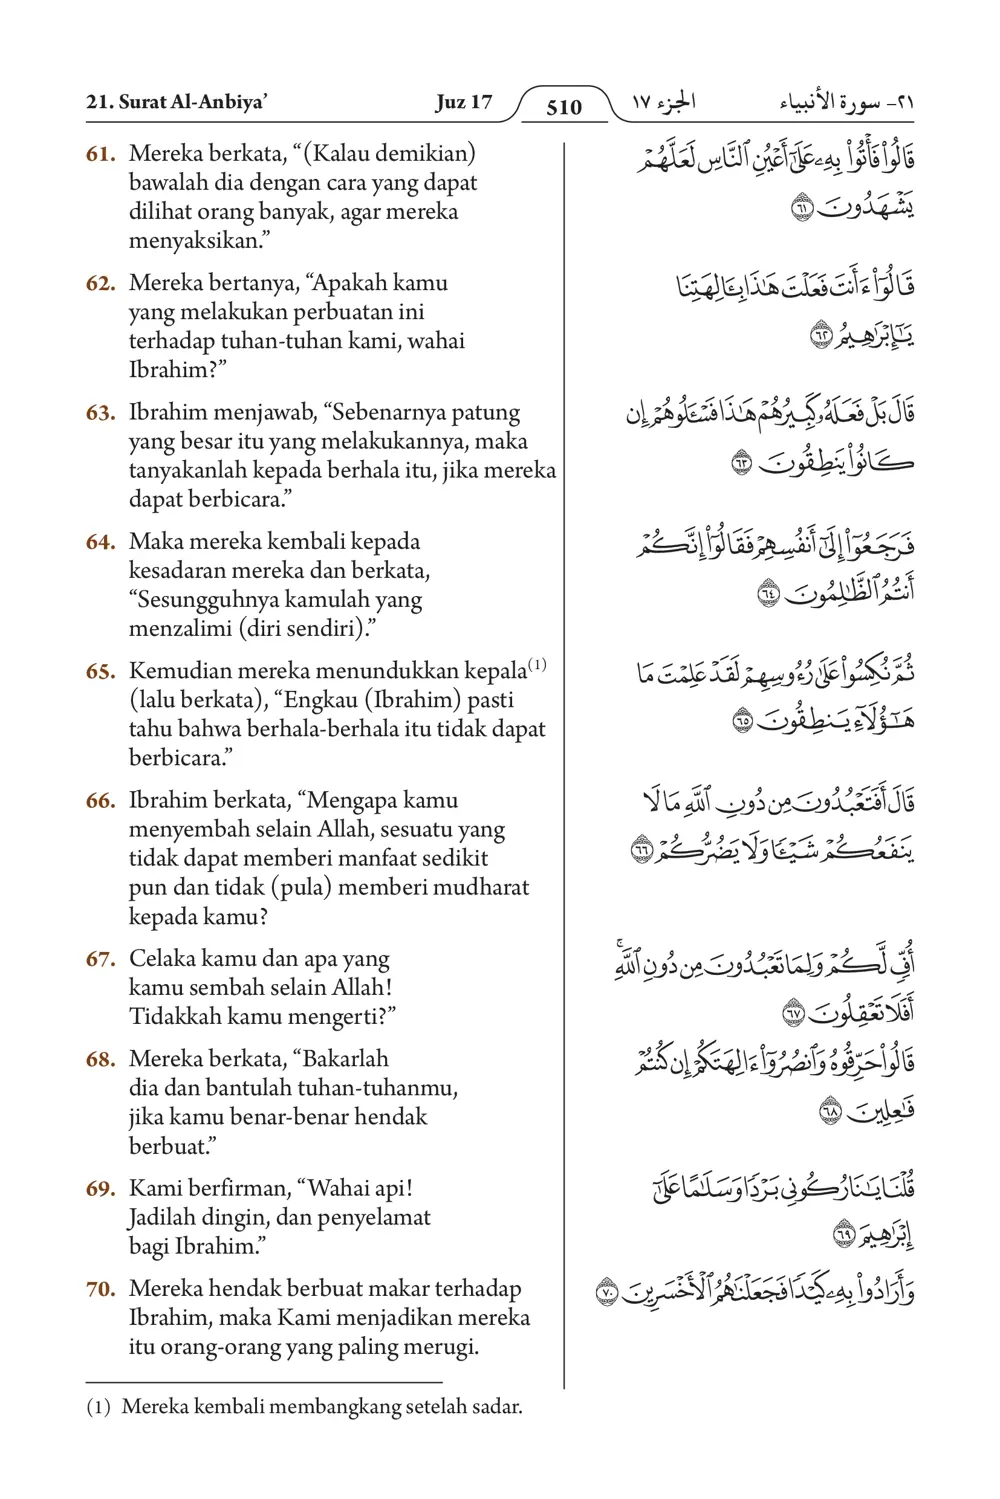 21. Surat Al-Anbiya’ Juz 17 510 الجزء ١٧ ٢١- سورة الأنبياء
61. Mereka berkata, “(Kalau demikian)
bawalah dia dengan cara yang dapat
dilihat orang banyak, agar mereka
menyaksikan.”
62. Mereka bertanya, “Apakah kamu
yang melakukan perbuatan ini
terhadap tuhan-tuhan kami, wahai
Ibrahim?”
63. Ibrahim menjawab, “Sebenarnya patung
yang besar itu yang melakukannya, maka
tanyakanlah kepada berhala itu, jika mereka
dapat berbicara.”
64. Maka mereka kembali kepada
kesadaran mereka dan berkata,
“Sesungguhnya kamulah yang
menzalimi (diri sendiri).”
65. Kemudian mereka menundukkan kepala(1)
(lalu berkata), “Engkau (Ibrahim) pasti
tahu bahwa berhala-berhala itu tidak dapat
berbicara.”
66. Ibrahim berkata, “Mengapa kamu
menyembah selain Allah, sesuatu yang
tidak dapat memberi manfaat sedikit
pun dan tidak (pula) memberi mudharat
kepada kamu?
67. Celaka kamu dan apa yang
kamu sembah selain Allah!
Tidakkah kamu mengerti?”
68. Mereka berkata, “Bakarlah
dia dan bantulah tuhan-tuhanmu,
jika kamu benar-benar hendak
berbuat.”
69. Kami berfirman, “Wahai api!
Jadilah dingin, dan penyelamat
bagi Ibrahim.”
70. Mereka hendak berbuat makar terhadap
Ibrahim, maka Kami menjadikan mereka
itu orang-orang yang paling merugi.
قَالُوا۟ فَأْتُوا۟ بِهِۦ عَلَىٰٓ أَعْيُنِ ٱلنَّاسِ لَعَلَّهُمْ
يَشْهَدُونَ ٦١
قَالُوٓا۟ ءَأَنتَ فَعَلْتَ هَـٰذَا بِـَٔالِهَتِنَا
يَـٰٓإِبْرَٰهِيمُ ٦٢
قَالَ بَلْ فَعَلَهُۥ كَبِيرُهُمْ هَـٰذَا فَسْـَٔلُوهُمْ إِن
كَانُوا۟ يَنطِقُونَ ٦٣
فَرَجَعُوٓا۟ إِلَىٰٓ أَنفُسِهِمْ فَقَالُوٓا۟ إِنَّكُمْ
أَنتُمُ ٱلظَّـٰلِمُونَ ٦٤
ثُمَّ نُكِسُوا۟ عَلَىٰ رُءُوسِهِمْ لَقَدْ عَلِمْتَ مَا
هَـٰٓؤُلَآءِ يَنطِقُونَ ٦٥
قَالَ أَفَتَعْبُدُونَ مِن دُونِ ٱللَّهِ مَا لَا
يَنفَعُكُمْ شَيْـًٔا وَلَا يَضُرُّكُمْ ٦٦
أُفٍّ لَّكُمْ وَلِمَا تَعْبُدُونَ مِن دُونِ ٱللَّهِ ۚ
أَفَلَا تَعْقِلُونَ ٦٧
قَالُوا۟ حَرِّقُوهُ وَٱنصُرُوٓا۟ ءَالِهَتَكُمْ إِن كُنتُمْ
فَـٰعِلِينَ ٦٨
قُلْنَا يَـٰنَارُ كُونِى بَرْدًا وَسَلَـٰمًا عَلَىٰٓ
إِبْرَٰهِيمَ ٦٩
وَأَرَادُوا۟ بِهِۦ كَيْدًا فَجَعَلْنَـٰهُمُ ٱلْأَخْسَرِينَ ٧٠
(1) Mereka kembali membangkang setelah sadar.